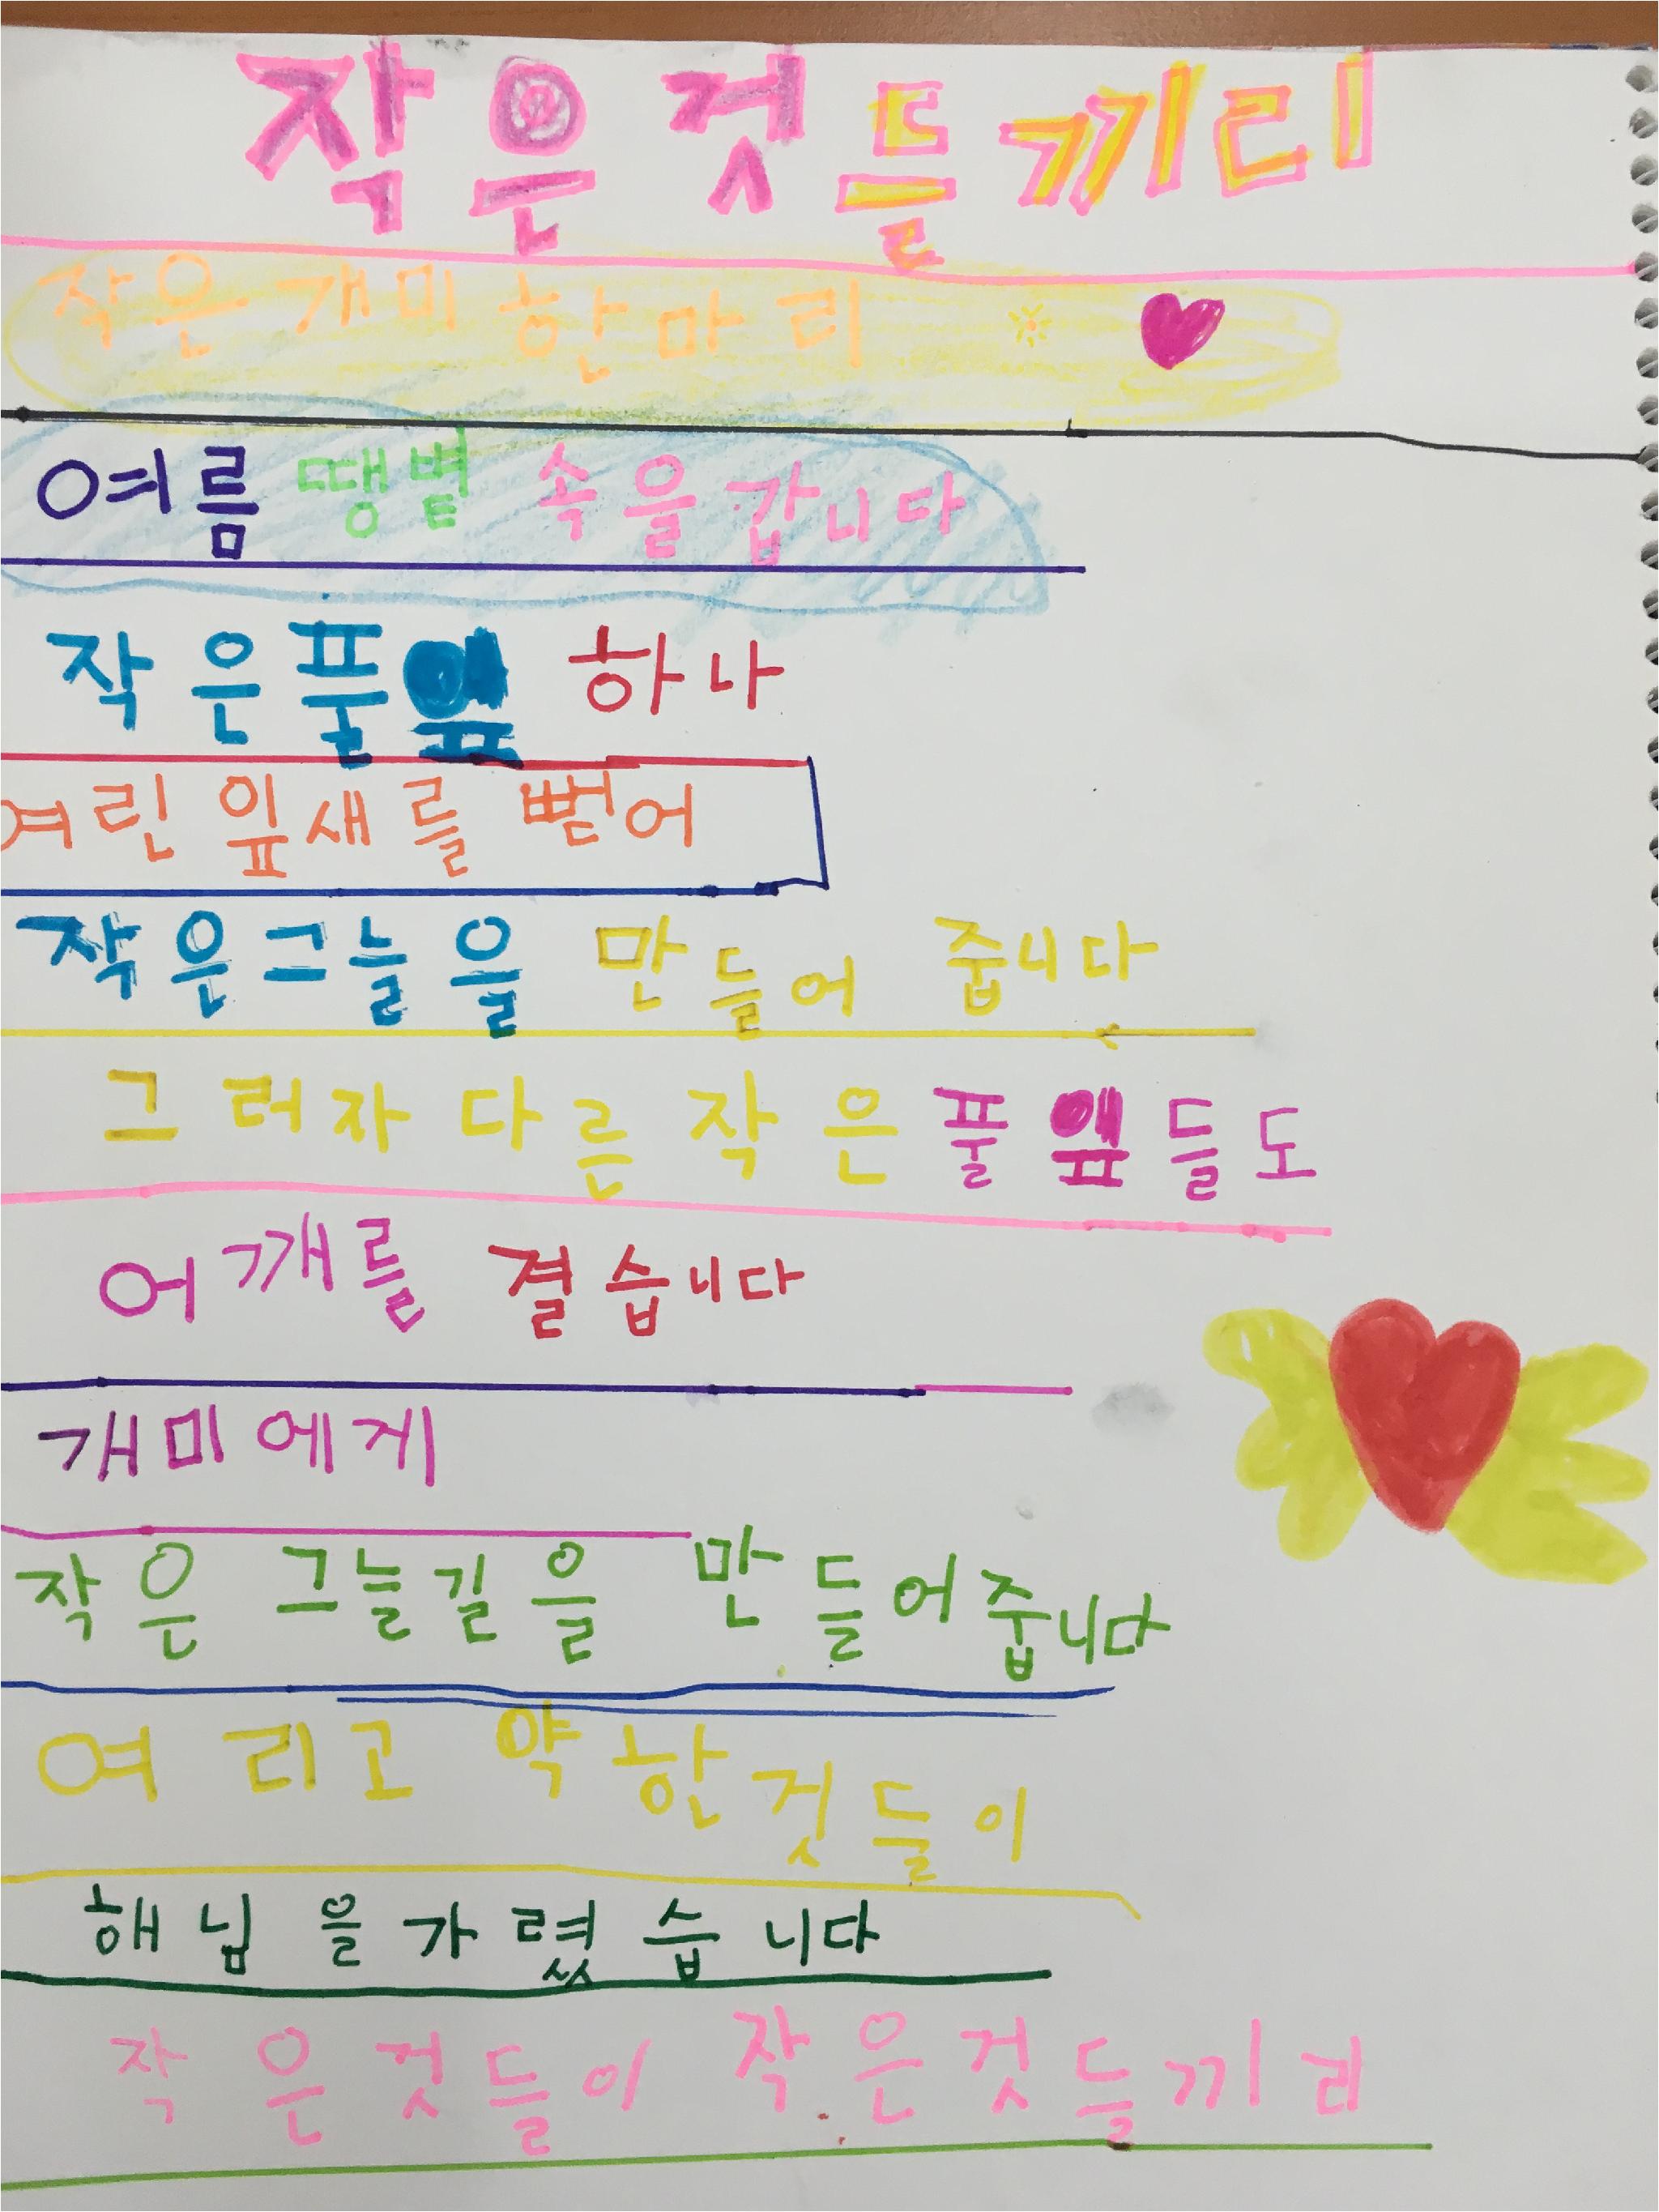 작은것들끼리
작은개미 한마리
여름 땡볕 속을 갑니다
작은풀잎 하나
여린 잎새를 뻗어
작은그늘을 만들어 줍니다
그러자 다른 작은 풀잎들도
어깨를 결습니다
개미에게
작은 그늘길을 만들어줍니다
여리고 약한것들이
해님을가렸습니다
작은것들이 작은것들끼리